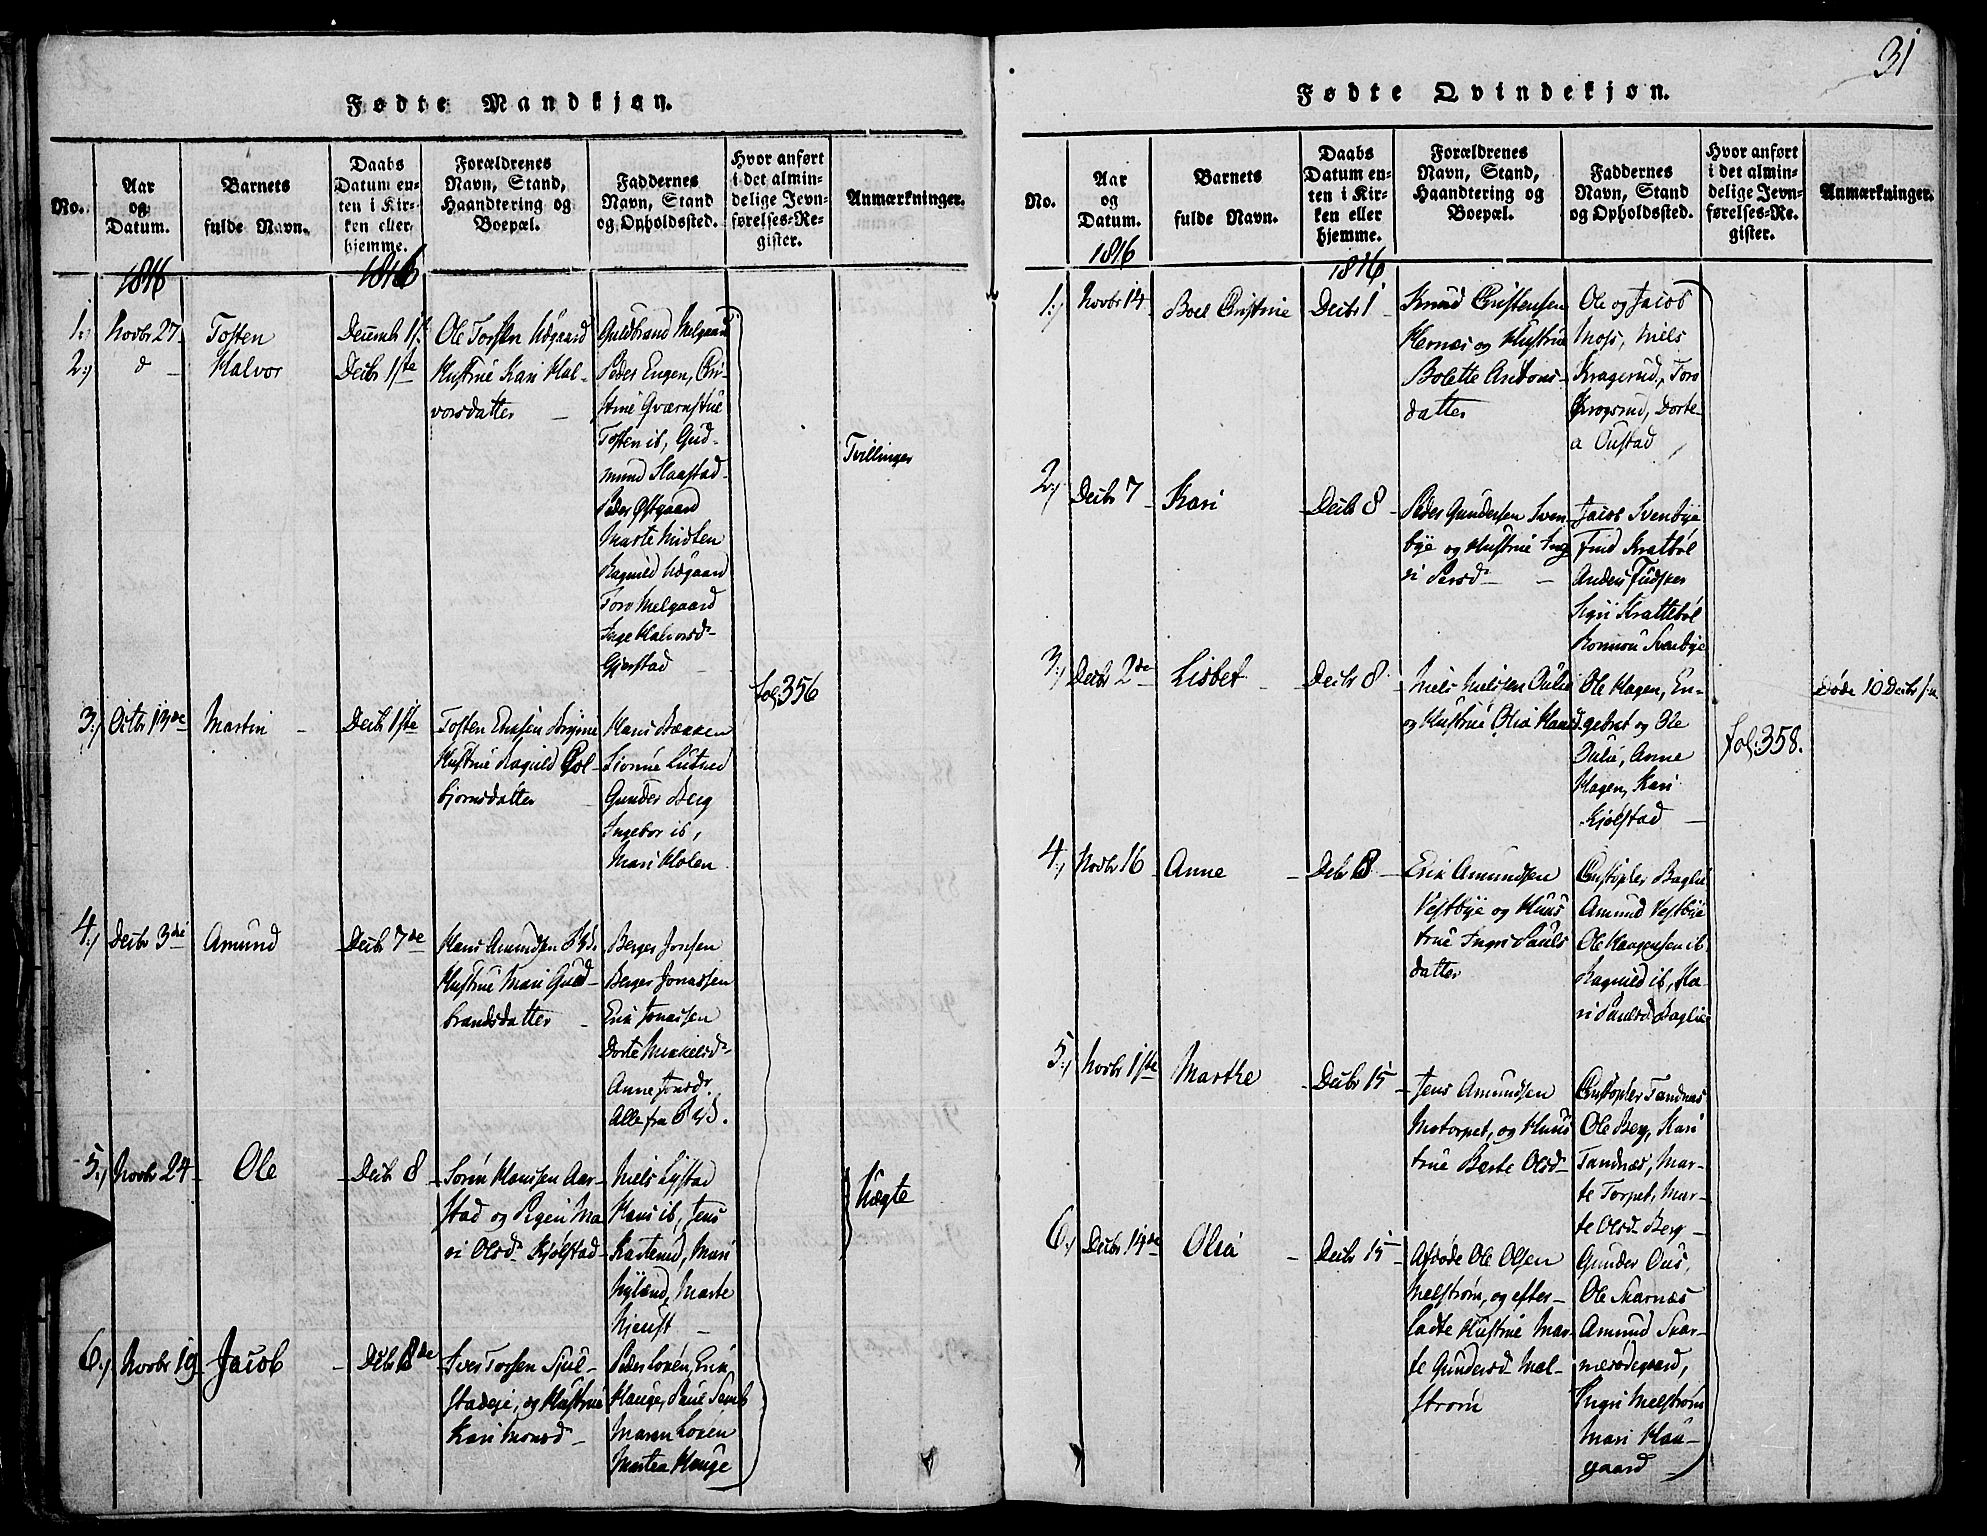 31
Fødte Mandkjøn.
No.
Aar
og
Datum.
Barnets
fulde Navn.
Daabs
Datum en-
ten i Kir-
ken eller
hjemme.
Forældrenes
Navn, Stand,
Haandtering og
Boepæl.
Faddernes
Navn, Stand
og Opholdssted.
Hvor anført
i det almin-
delige Jevn-
førelses-Re-
gister.
Anmærkninger.
1816
1816
1.) Novbr 27
Tosten
Decemb 1ste
Ole Torsten
Guldbrand Melgaard
2.) d
Halvor
Decbr 1ste
Hustrue Kari Hal-
vorsdatter
Peder Engen, Chri-
stine Qværnstue
Tosten ib, Gud-
mund Slaastad
Peder Østgaard
Marte
Ragnild
Toro Melgaard
Inge Halvorsd
Gjerstad
Tvillinger
fol: 356
3.) Octbr 13de
Martin
Decbr 1ste
Tosten
Hustrue Ragnild Col-
bjørnsdatter
Hans Bakken
Gunder Berg
Ingebor ib,
Mari Holen
4.) Decbr 3die
Amund
Decbr 7de
Hans Amundsen
Hustrue Mari Gud-
brandsdatter
Berger Jonsen
Berger Jonassen
Erik Jonassen
Dorte Mikkelsd
Anne Jonsdr.
Alle fra
5.) Novbr 24
Ole
Decbr 8
Søren Hansen Aar-
stad og Pigen Ma
ri Olsd Kjølstad
Niels Lystad
Hans ib, Jens
Karterud, Mari
Nyland, Marte
Uægte
6.) Novbr 19
Jacob
Debr 8de
Iver Torsen Sjul-
stadeje, og Hustrue
Kari Monsd
Peder Loren, Erik
Hauge, Paul
Maren Loren
Martea Hauge
Fødte Qvindekjøn.
No.
Aar
og
Datum.
Barnets
fulde Navn.
Daabs
Datum en-
ten i Kir-
ken eller
hjemme.
Forældrenes
Navn, Stand,
Haandtering og
Boepæl.
Faddernes
Navn, Stand
og Opholdssted.
Hvor anført
i det almin-
delige Jevn-
førelses-Re-
gister.
Anmærkninger.
1816
1816
1.) Novbr 14
Boel Christine
Decbr 1
Knud Christensen
Hernæs og Hustrue
Bolette Antons-
datter
Ole og Jacob
Moss, Niels
Kragerud, Toro
Krogsrud, Dorte-
a Oustad
2.) Decbr 7
Kari
Decbr 8
Peder Gundersen Sven
bye og Hustrue Ing
ri Persd
Jacob Svenbye
Find Kratbøl
Anders
Sigri Krattebøl
Svenbye
3.) Decbr 2de
Lisbet
Decbr 8
Niels Nielsen Aulie
og Hustrue Olia Hansd.
Ole Hagen, En-
gebret og Ole
Aulie, Anne
Hagen, Kari
Kjølstad
Døde 10 Decbr
fol: 358.
4.) Novbr 16
Anne
Debr 8
Erik Amundsen
Vestbye og Huus
true Ingri Pauls
datter
Christopher Baglie
Amund Vestbye
Ole Haagensen ib
Ragnild ib, Ka-
ri Paulsd Baglie
5.) Novbr 1ste
Marthe
Decbr 15
Jens Amundsen
Motorpet, og Huus
true Berte Olsd
Christopher Sandnæs
Ole Berg, Kari
Sandnæs, Mar-
te Torpet, Mar-
te Olsd Berg
6.) Decbr 14de
Olia
Decbr 15
Afdøde Ole Olsen
Melstrøm, og efter-
ladte Hustrue Mar-
te Gundersd Mel-
strøm
Gunder Ous,
Ole Skarnæs
Amund Skar-
næsødegaard,
Ingri Melstrøm
Mari Hau-
gaard